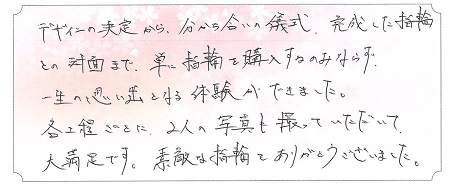 デザインの決定から、分かち合いの儀式、完成した指輪
との対面まで、単に指輪を購入するのみならず、
一生の思い出となる体験ができました。
各工程ごとに、2人の写真も撮っていただいて、
大満足です。素敵な指輪をありがとうございました。